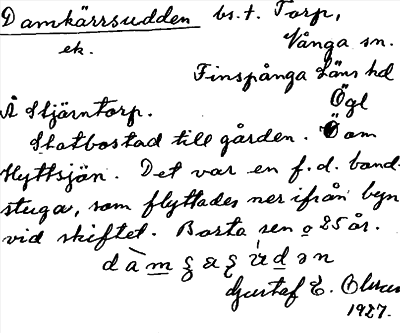 Damkärrsudden bs.t. Torp,
ek. Vånga sn.
Finspånga Läns hd
Ögl
Å Stjärntorp.
Statbostad till gården. Ö om
Hyttsjön. Det var en f.d. band-
stuga, som flyttades ner ifrån byn
vid skiftet. Borta sen o 25 år.
Gustaf E.
1927.